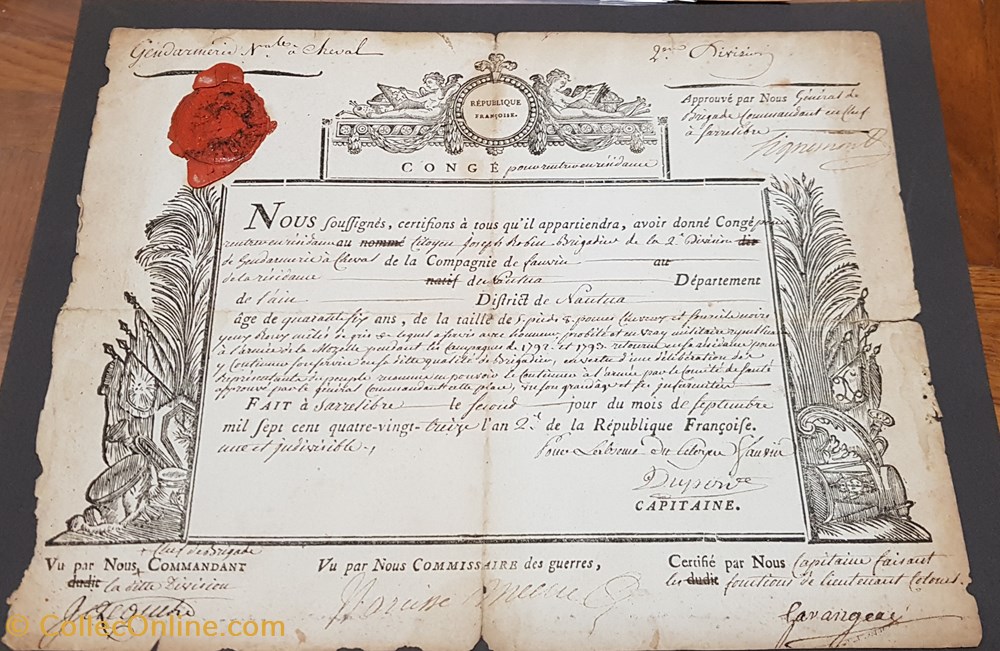 Gendarmerie N.ale à Cheval
2.me Division
RÉPUBLIQUE
FRANÇOISE.
Approuvé par Nous Général de
Brigade Commandant en Chef
à Sarrelibre
CONGÉ pour rentrer en résidance
NOUS soussignés, certifions à tous qu'il appartiendra, avoir donné Congé pour
rentrer en résidance au nommé Citoyen Joseph Robin Brigadier de la 2.e Division des
de Gendarmerie à Cheval de la Compagnie de Fauvin au
de la résidance natif de Nantua Département
de l'ain District de Nantua
âge de quarante six ans, de la taille de 5 pieds 5 pouces Cheveux et sourcils noirs
yeux Roux mêlés de gris
à l'armée de la Mozelle pendant les Campagnes de 1792 et 1793. retourne en sa résidance pour
y Continuer son service en sa ditte qualité de Brigadier, en vertu d'une délibération des
Représentants du peuple
approuvé par le général Commandant cette place, vu son grand age et ses infirmités
FAIT à Sarrelibre le second jour du mois de Septembre
mil sept cent quatre-vingt-treize l'an 2.e de la République Françoise.
une et indivisible.
Pour L'absence du Citoyen Fauvin
Dupont
CAPITAINE.
Chef de Brigade
Vu par Nous COMMANDANT
dudit la ditte Division
Vu par Nous COMMISSAIRE des guerres,
Certifié par Nous Capitaine faisant
les dudit fonctions de lieutenant Colonel.
Lavangeac
© CollecOnline.com